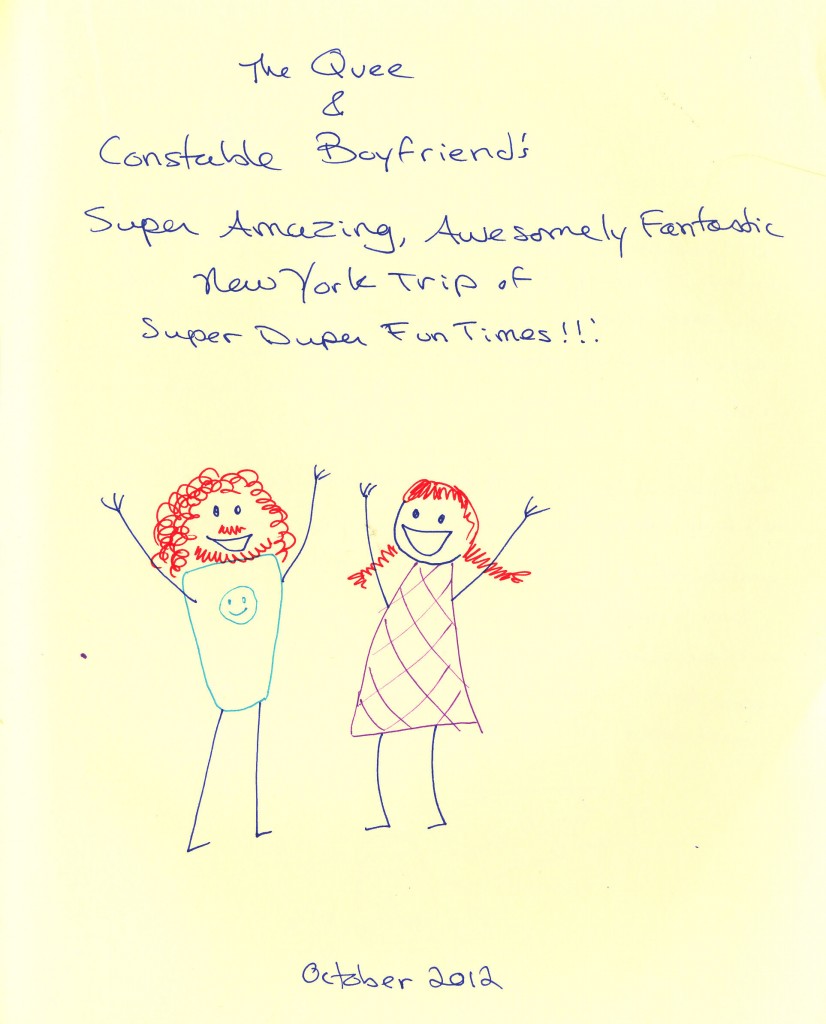 The Quee
&
Constable Boyfriend's
Super Amazing, Awesomely Fantastic
New York Trip of
Super Duper Fun Times!!!
October 2012